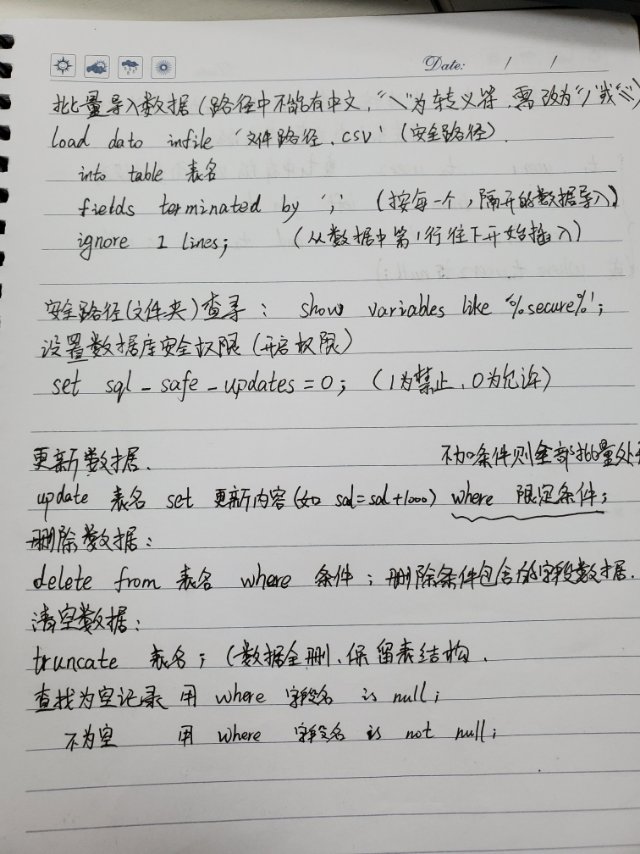 Date: / /
批量导入数据(路径中不能有中文,"\"为转义符,需改为"/"或"\\"
load dato infile '文件路径.csv' (安全路径).
into table 表名
fields terminated by ',' (按每一个,隔开的数据导入)
ignore 1 lines; (从数据中第1行往下开始插入)
安全路径(文件夹)查寻: show variables like '%secure%';
设置数据库安全权限(开启权限)
set sql_safe_updates=0; (1为禁止,0为允许)
更新数据. 不加条件则全部批量处理
update 表名 set 更新内容(如 sal=sal+1000) where 限定条件;
删除数据:
delete from 表名 where 条件; 删除条件包含的字段数据.
清空数据:
truncate 表名; (数据全删、保留表结构.
查找为空记录 用 where 字段名 is null;
不为空 用 where 字段名 is not null;